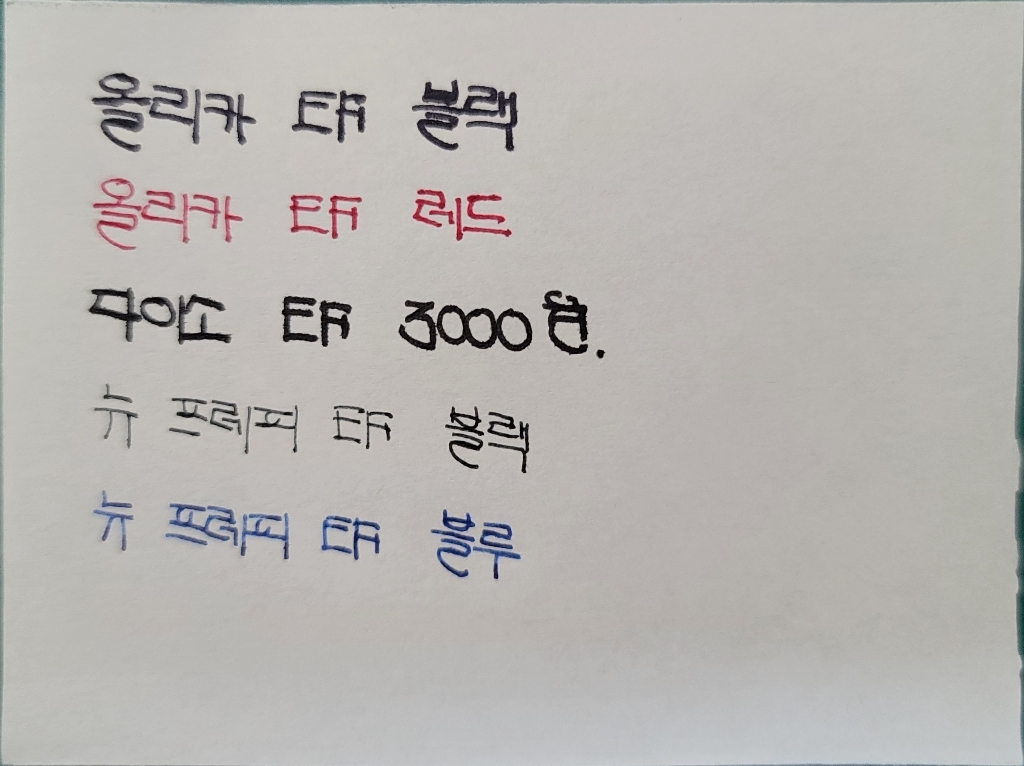 올리카 EF 블랙
올리카 EF 레드
다이소 EF 3000원.
뉴 프레피 EF 블랙
뉴 프레피 EF 블루